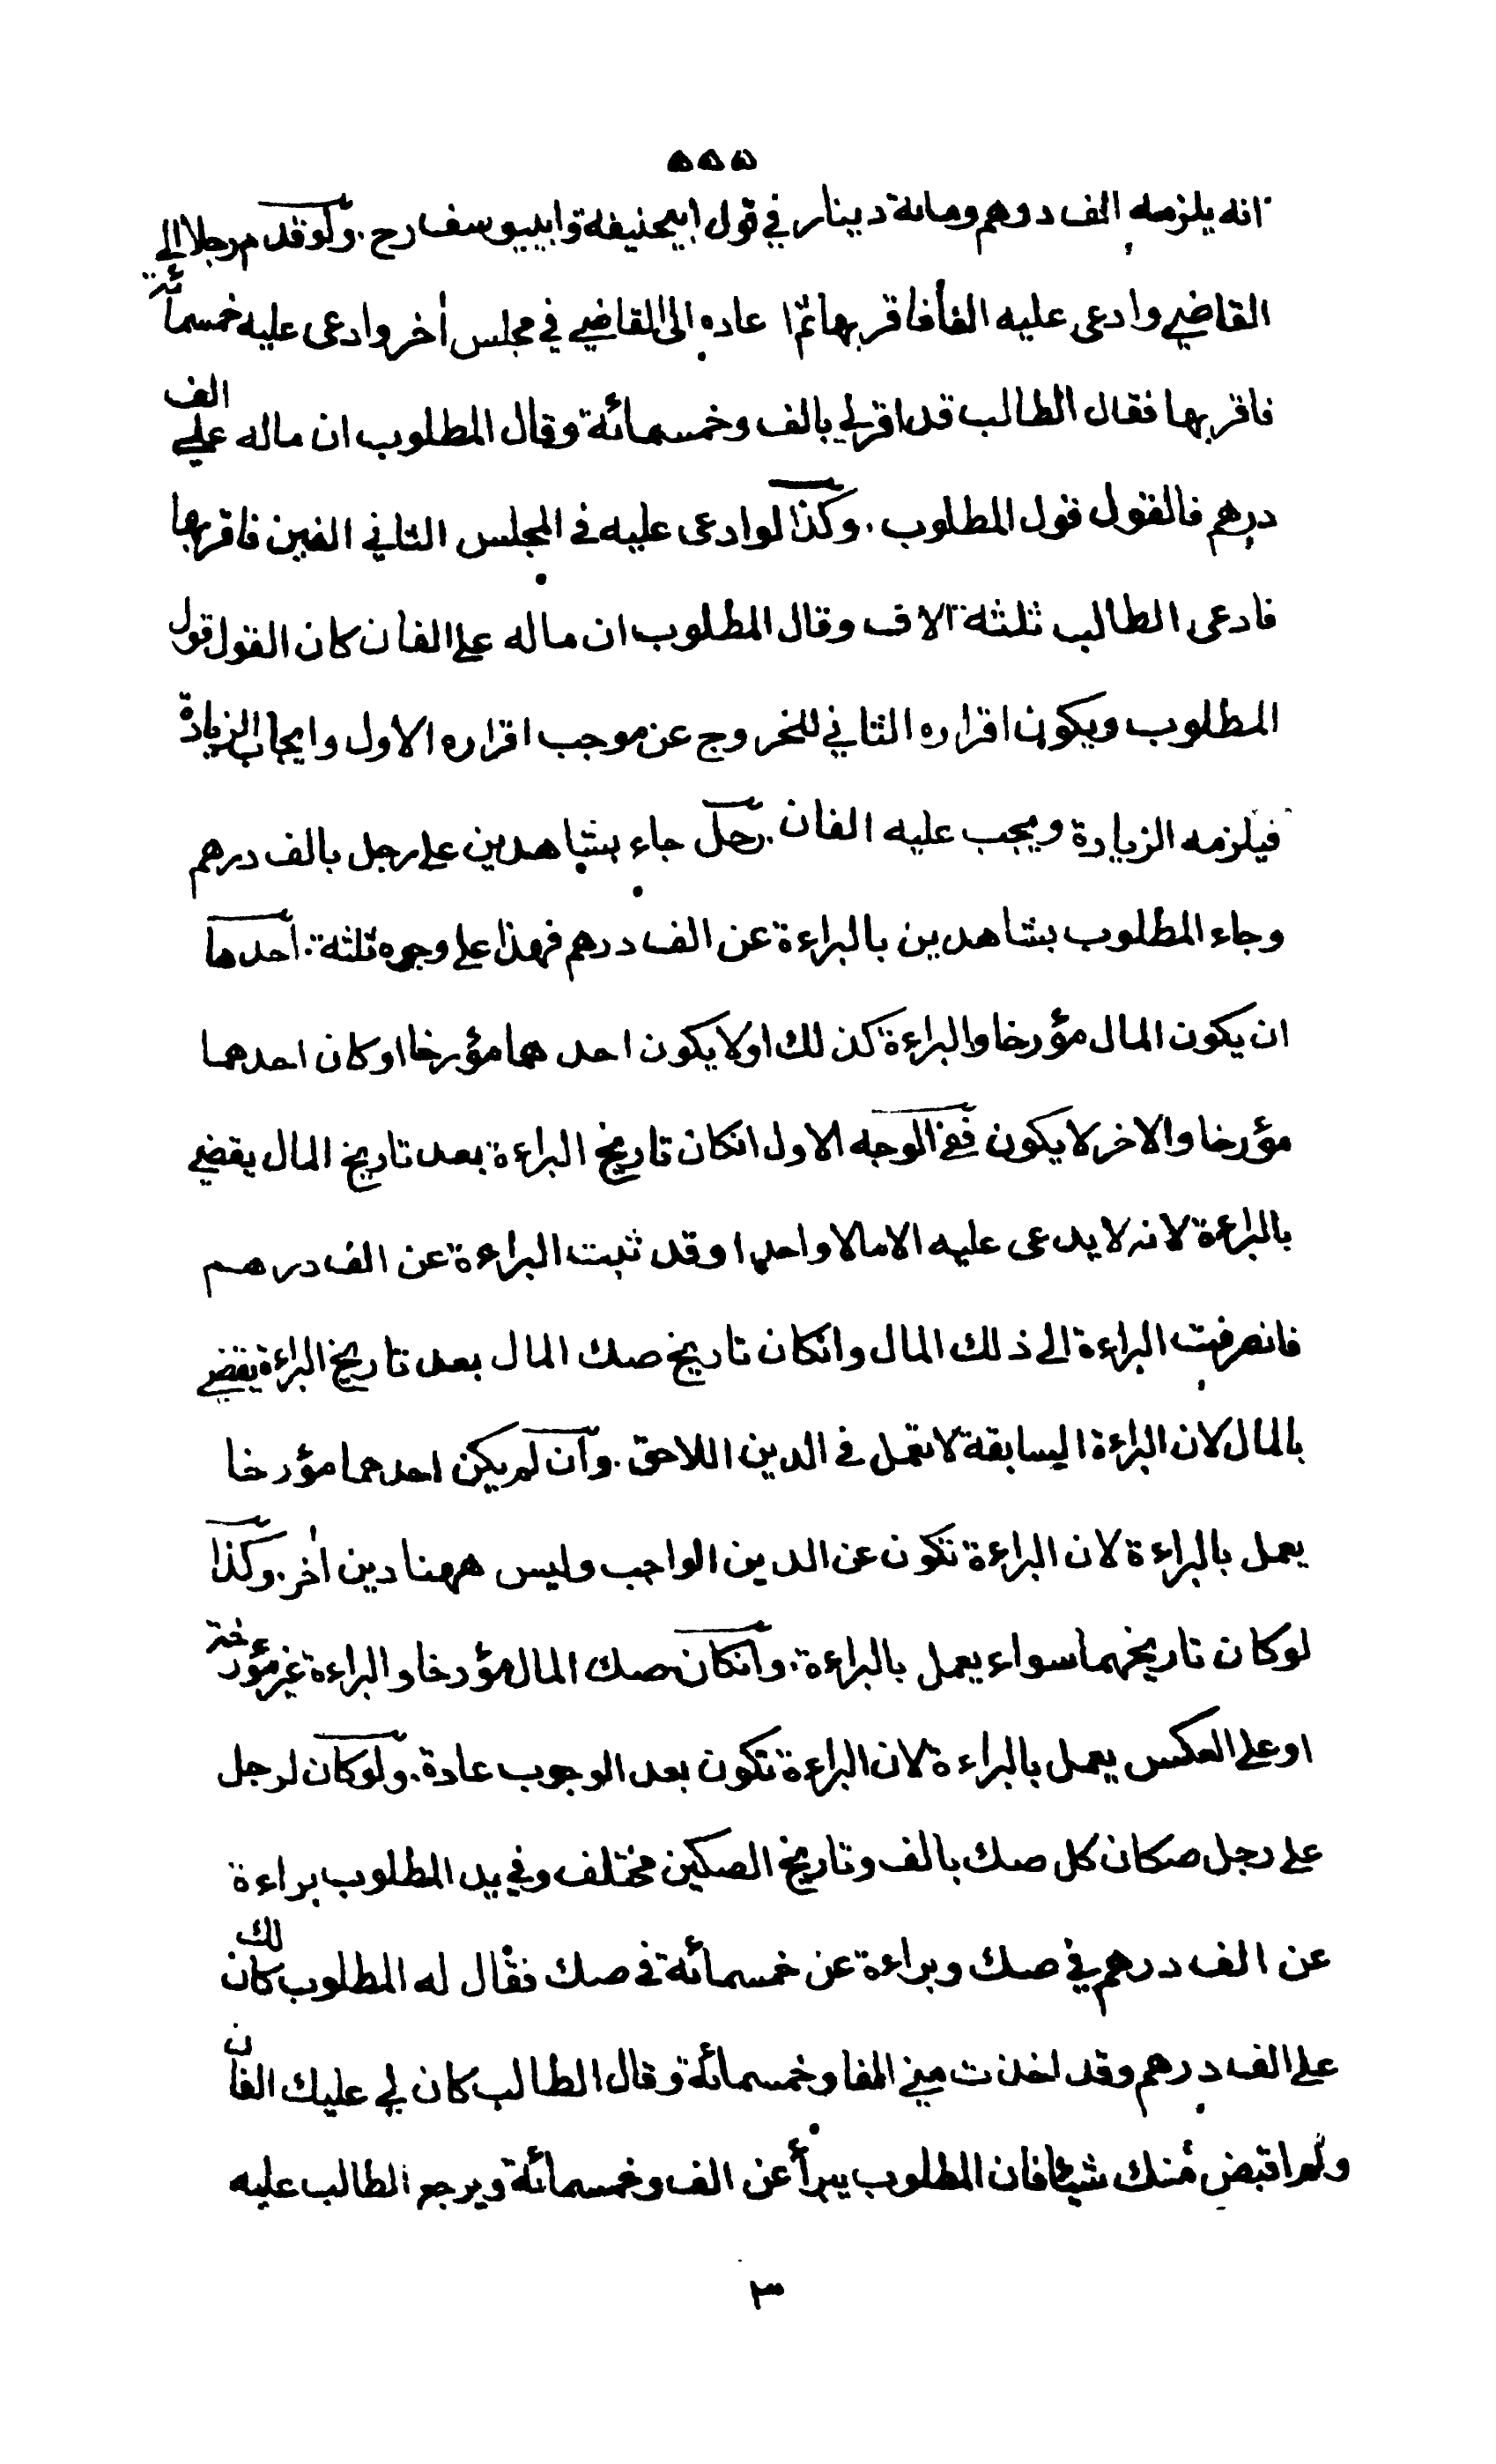 ٥٥٥
انه يلزمه الف درهم ومائة دينار في قول ابيحنيفة وابييوسف رح . ولو قدم رجلا الى
القاضي وادعى عليه الفا فاقر بها ثم اعاده الى القاضي في مجلس اٰخر وادعى عليه خمسمائة
فاقر بها فقال الطالب قد اقر لي بالف وخمسمائة وقال المطلوب ان ماله علي الف
درهم فالقول قول المطلوب . وكذا لو ادعى عليه في المجلس الثاني الفين فاقر بها
فادعى الطالب ثلثة آلاف وقال المطلوب ان ماله علي الفان كان القول قول
المطلوب ويكون اقراره الثاني للخروج عن موجب اقراره الاول وايجاب الزيادة
فيلزمه الزيادة ويجب عليه الفان . رجل جاء بشاهدين على رجل بالف درهم
وجاء المطلوب بشاهدين بالبراءة عن الف درهم فهذا على وجوه ثلثة . احدها
ان يكون المال مؤرخا والبراءة كذلك او لا يكون احدهما مؤرخا او كان احدهما
مؤرخا والاخر لا يكون ففي الوجه الاول انكان تاريخ البراءة بعد تاريخ المال يقضي
بالبراءة لانه لا يدعى عليه الا مالا واحدا وقد ثبت البراءة عن الف درهم
فانصرفت البراءة الى ذلك المال وانكان تاريخ صك المال بعد تاريخ البراءة يقضي
بالمال لان البراءة السابقة لا تعمل في الدين اللاحق . وان لم يكن احدهما مؤرخا
يعمل بالبراءة لان البراءة تكون عن الدين الواجب وليس ههنا دين اٰخر . وكذا
لو كان تاريخهما سواء يعمل بالبراءة . وانكان صك المال مؤرخا والبراءة غير مؤرخة
او على العكس يعمل بالبراءة لان البراءة تكون بعد الوجوب عادة . ولو كان لرجل
على رجل صكان كل صك بالف وتاريخ الصكين مختلف وفي يد المطلوب براءة
عن الف درهم في صك وبراءة عن خمسمائة في صك فقال له المطلوب كان لك
علي الف درهم وقد اخذت مني الفا وخمسمائة وقال الطالب كان لي عليك الفان
ولم اقبض منك شيئا فان المطلوب يبرأ عن الف وخمسمائة ويرجع الطالب عليه
٣